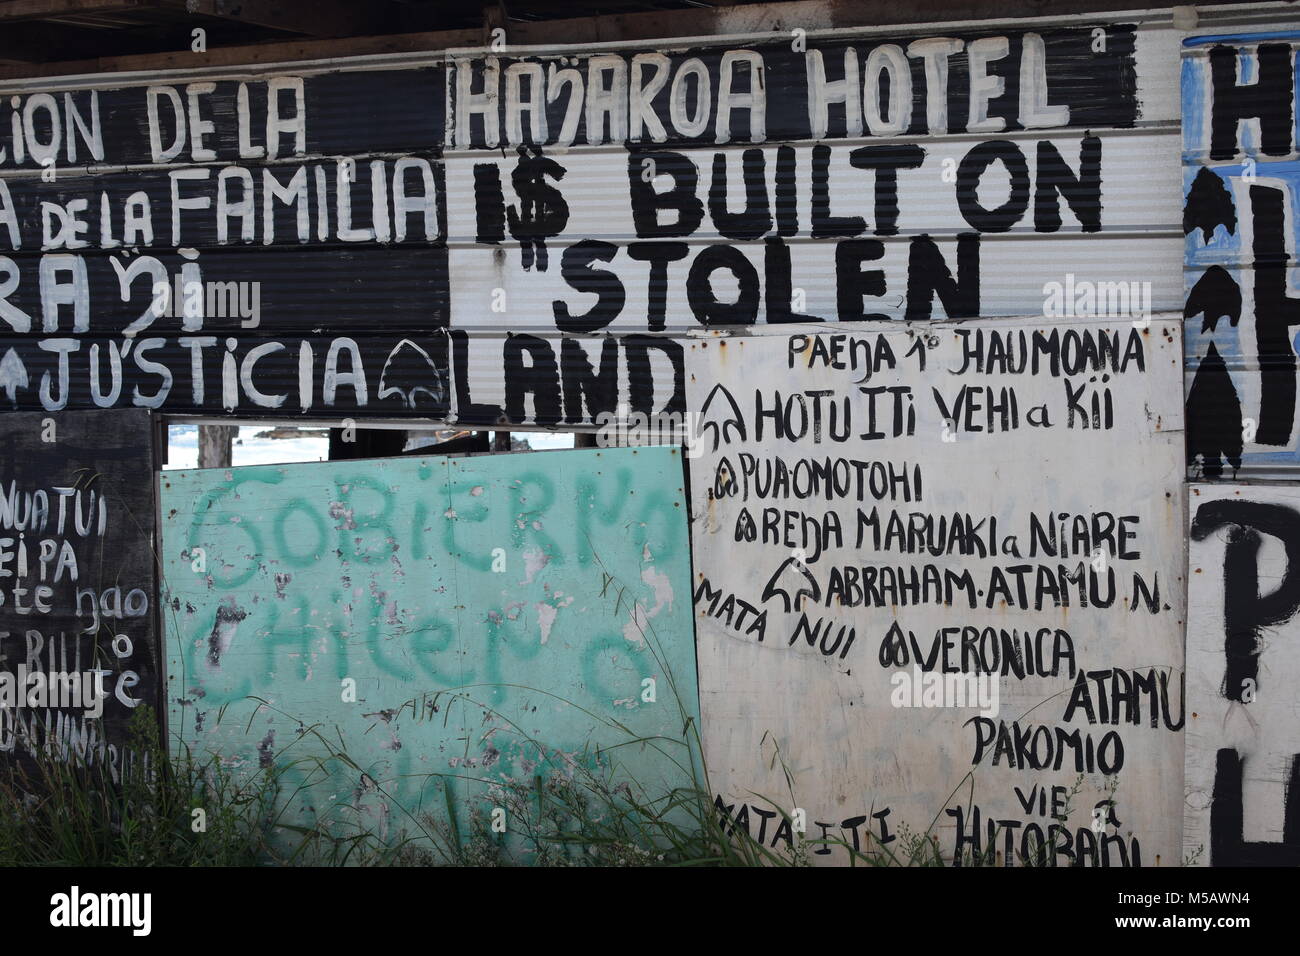 CION DE LA
A DE LA FAMILIA
RAŊi
JUSTiCIA
HAŊAROA HOTEL
I$ BUILT ON
STOLEN
LAND
NUA TUI
EI PA
te ŋao
GOBiERNO
CHiLENO
PAEŊA 1º JHAUMOANA
HOTU ITi VEHI a Kii
PUA·OMOTOHI
REŊA MARUAKI a NIARE
ABRAHAM·ATAMU N.
MATA NUI
VERONICA
ATAMU
PAKOMIO
VIE a
MATA ITI HITORAŊI
alamy
Image ID: M5AWN4
www.alamy.com